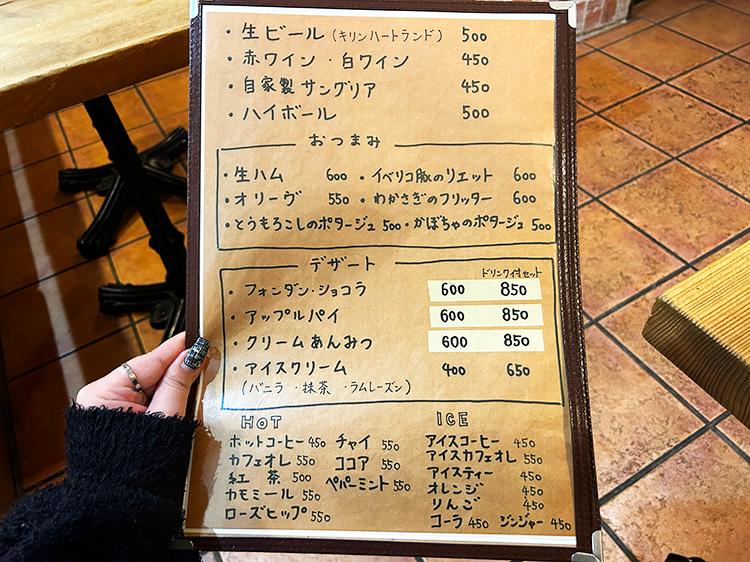 ・生ビール（キリンハートランド） 500
・赤ワイン・白ワイン 450
・自家製サングリア 450
・ハイボール 500
おつまみ
・生ハム 600 ・イベリコ豚のリエット 600
・オリーヴ 550 ・わかさぎのフリッター 600
・とうもろこしのポタージュ 500 ・かぼちゃのポタージュ 500
デザート
ドリンク付セット
・フォンダン・ショコラ 600 850
・アップルパイ 600 850
・クリームあんみつ 600 850
・アイスクリーム 400 650
（バニラ・抹茶・ラムレーズン）
HOT
ホットコーヒー 450 チャイ 550
カフェオレ 550 ココア 550
紅茶 500 ペパーミント 550
カモミール 550
ローズヒップ 550
ICE
アイスコーヒー 450
アイスカフェオレ 550
アイスティー 450
オレンジ 450
りんご 450
コーラ 450 ジンジャー 450